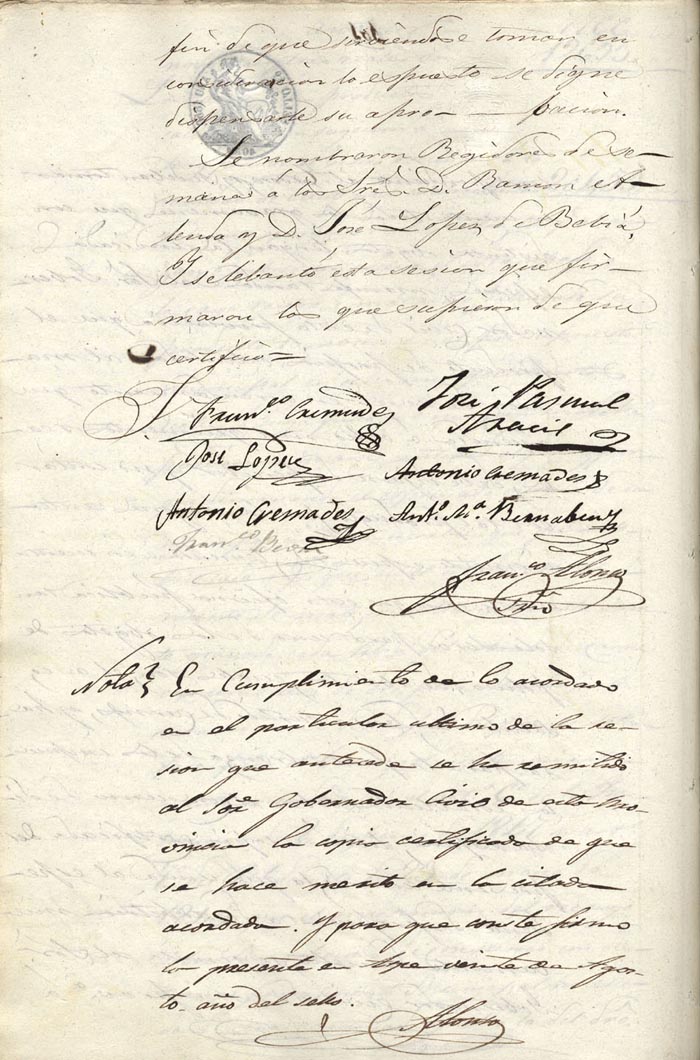 fin de que sirviendose tomar en
consideracion lo espuesto se digne
dispensarle su apro- - bacion.
Se nombraron Regidores de se-
mana á los Sres. D. Ramon
y D. José Lopez de Bebiá,
Y se lebantó esta sesion que fir-
maron los que supieron de que
certifico=
Franco. Cremades
José Pascual
Aracil
José Lopez
Antonio Cremades
Antonio Cremades
Anto. Ma. Bernabeu
Franco.
Franco. Alonso
Srio
Nota En Cumplimiento de lo acordado
en el particular ultimo de la se-
sion que antecede se ha remitido
al Sor. Gobernador Civil de esta Pro-
vincia la copia certificada de que
se hace merito en lo citado
acordado. Y para que conste firmo
la presente en Aspe veinte de Agos-
to año del sello.
Alonso